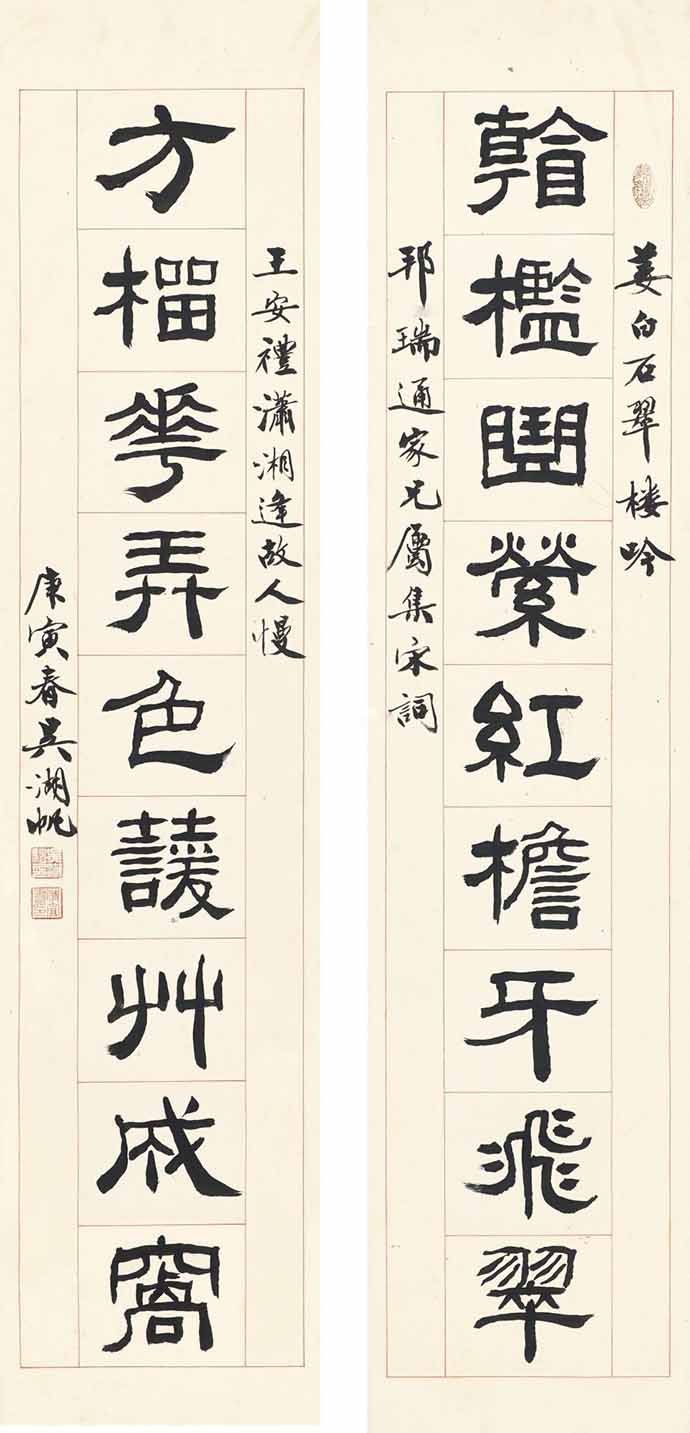 姜白石翠樓吟
看檻曲縈紅檐牙飛翠
邦瑞通家兄屬集宋詞
王安禮瀟湘逢故人慢
方榴華弄色蘐艸成窩
庚寅春吳湖帆